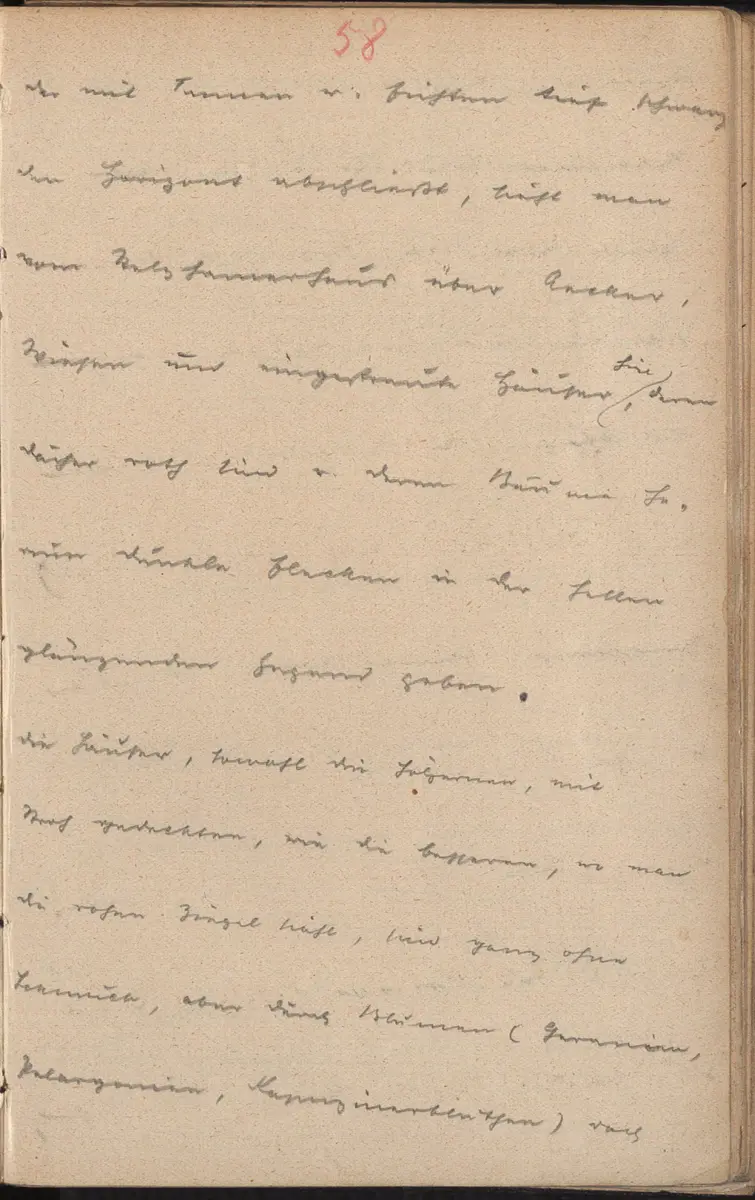 58
der mit Tannen u. Fichten tief schwarz
den Horizont abschließt, sieht man
vom Stelzhamerhaus über Aecker,
Wiesen und eingestreute Häuser hin, deren
Dächer roth sind u. deren Bäume
nun dunkle Flecken in der hellen
glänzenden Gegend geben.
die Häuser, sowohl die hölzernen, mit
Stroh gedeckten, wie die besseren, wo man
die rohen Ziegel sieht, sind ganz ohne
Schmuck, aber durch Blumen (Geranien,
Pelargonien, Kapuzinerblüthen) doch